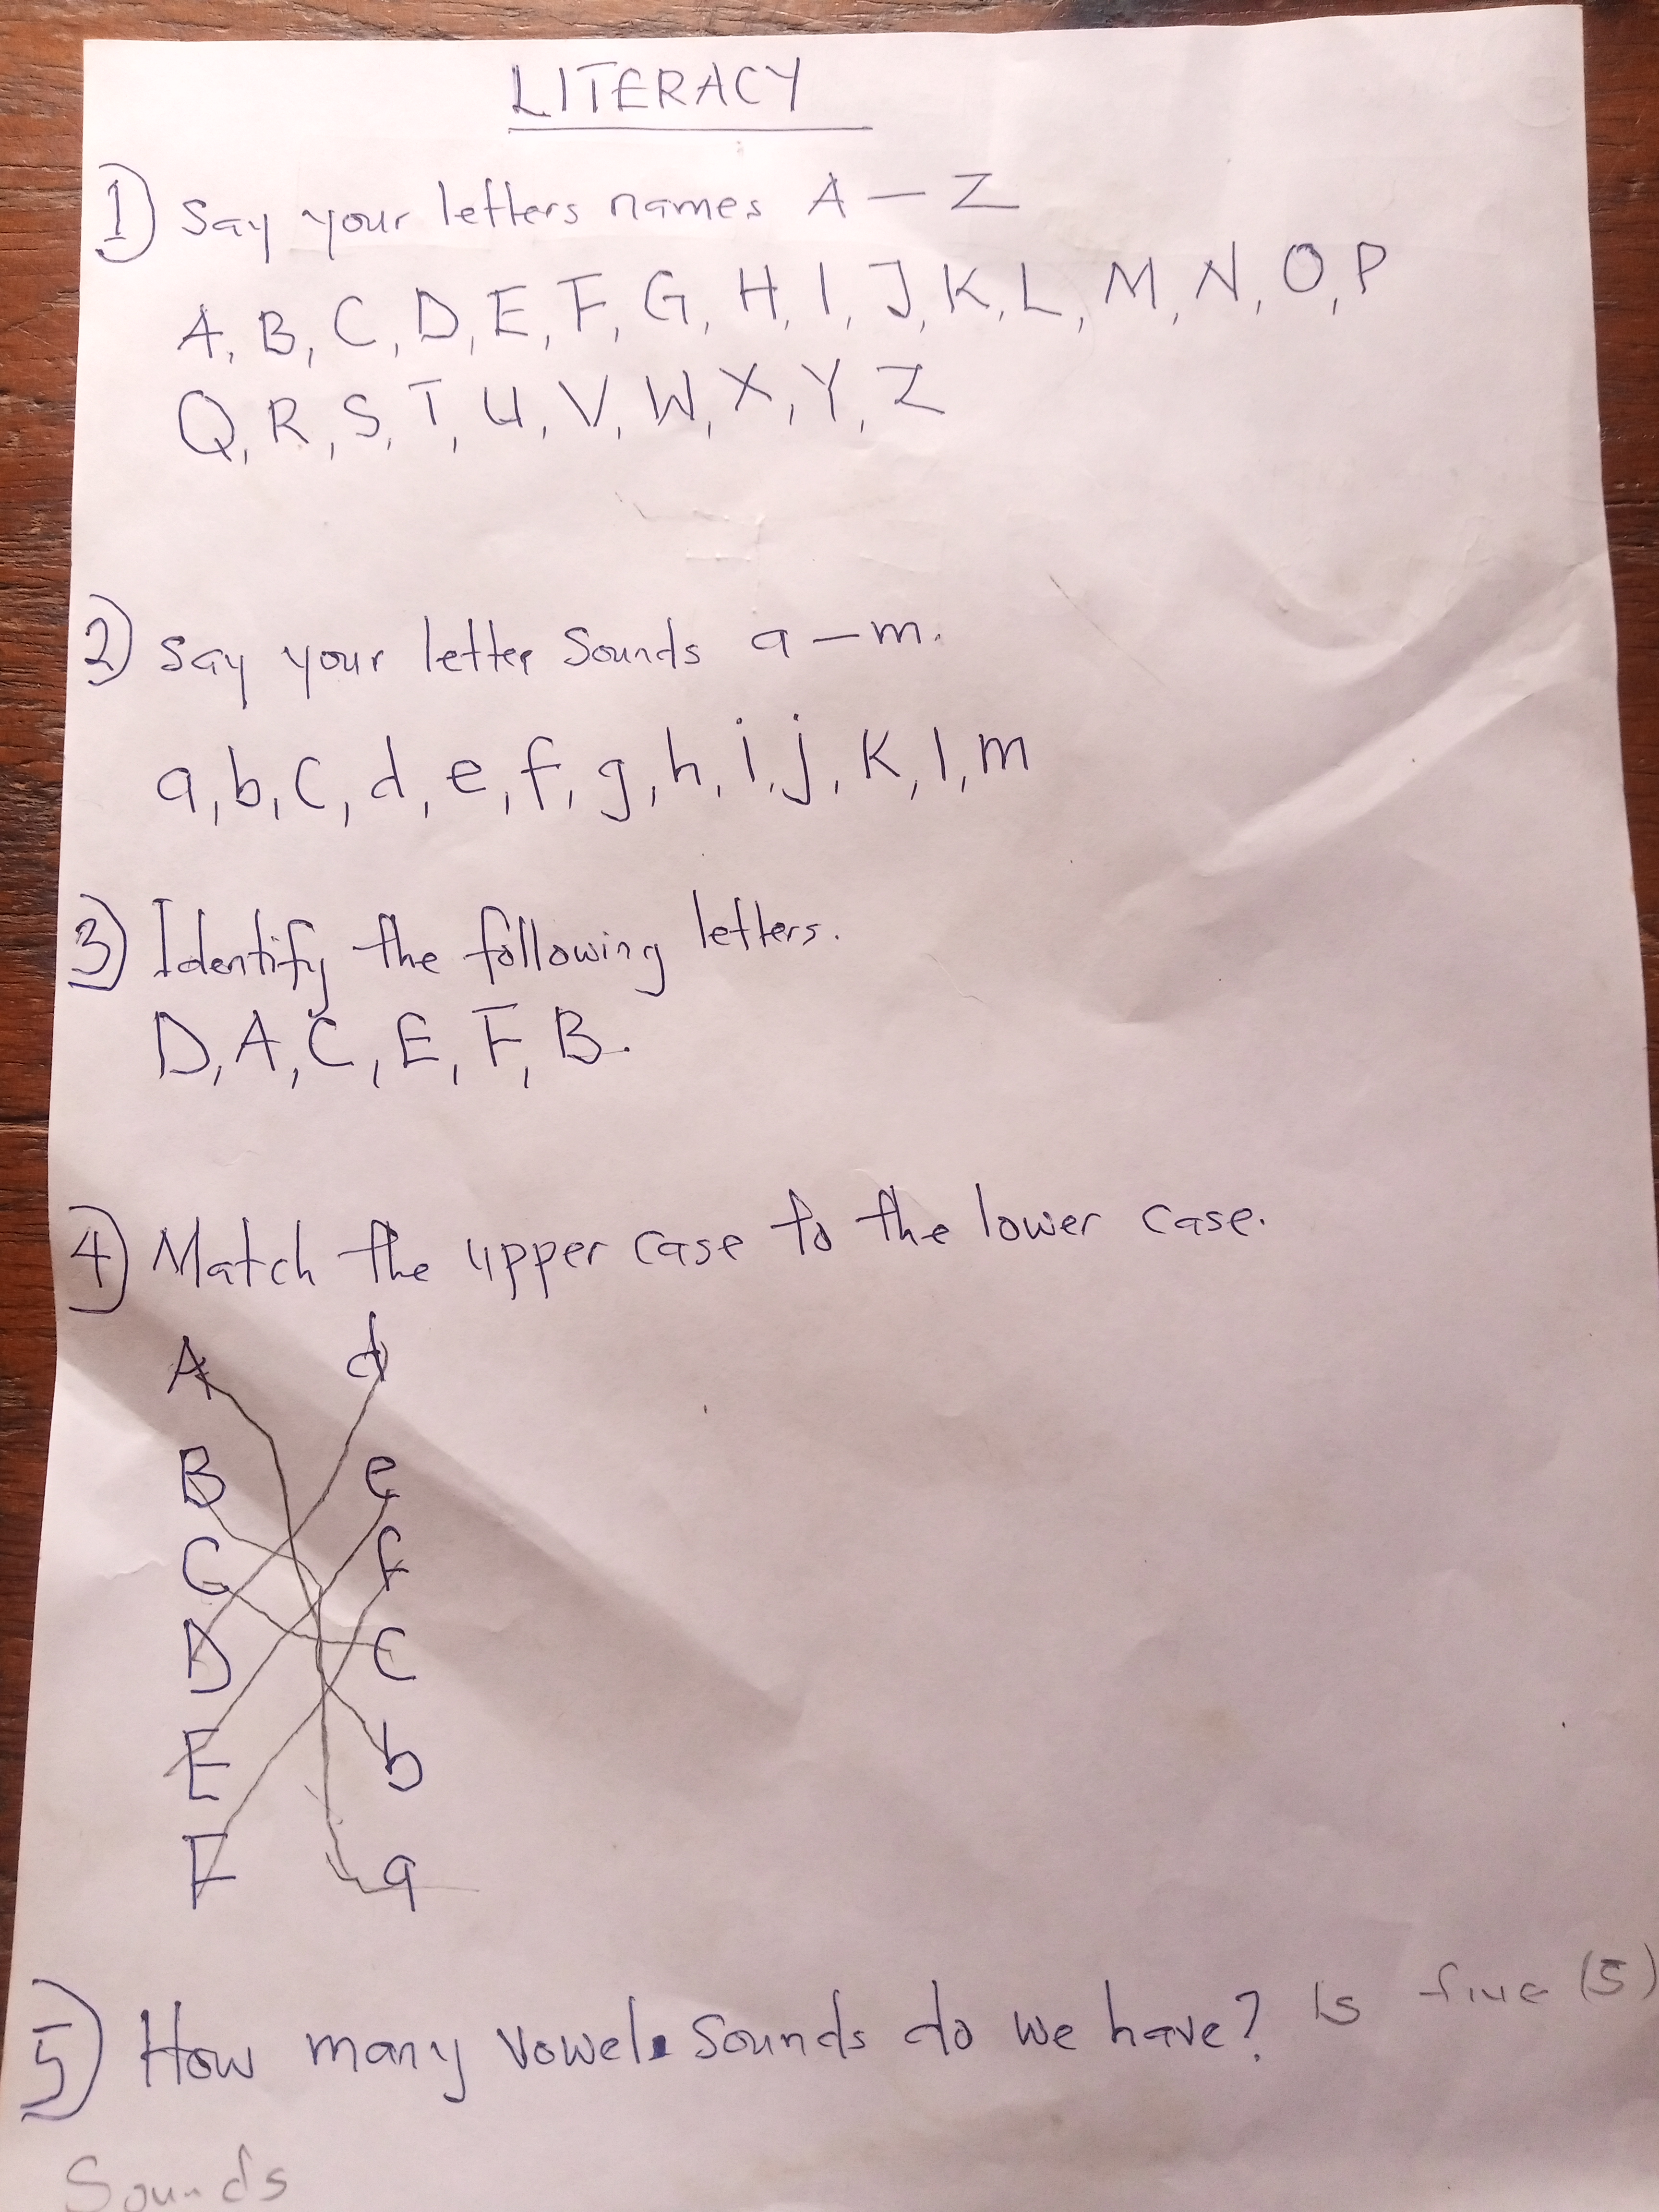 LITERACY
1) Say your letters names A — Z
A, B, C, D, E, F, G, H, I, J, K, L, M, N, O, P
Q, R, S, T, U, V, W, X, Y, Z
2) Say your letter Sounds a — m.
a, b, c, d, e, f, g, h, i, j, k, l, m
3) Identify the following letters.
D, A, C, E, F, B.
4) Match the upper case to the lower case.
A d
B e
C f
D c
E b
F a
5) How many vowel Sounds do we have? Is five (5)
Sounds